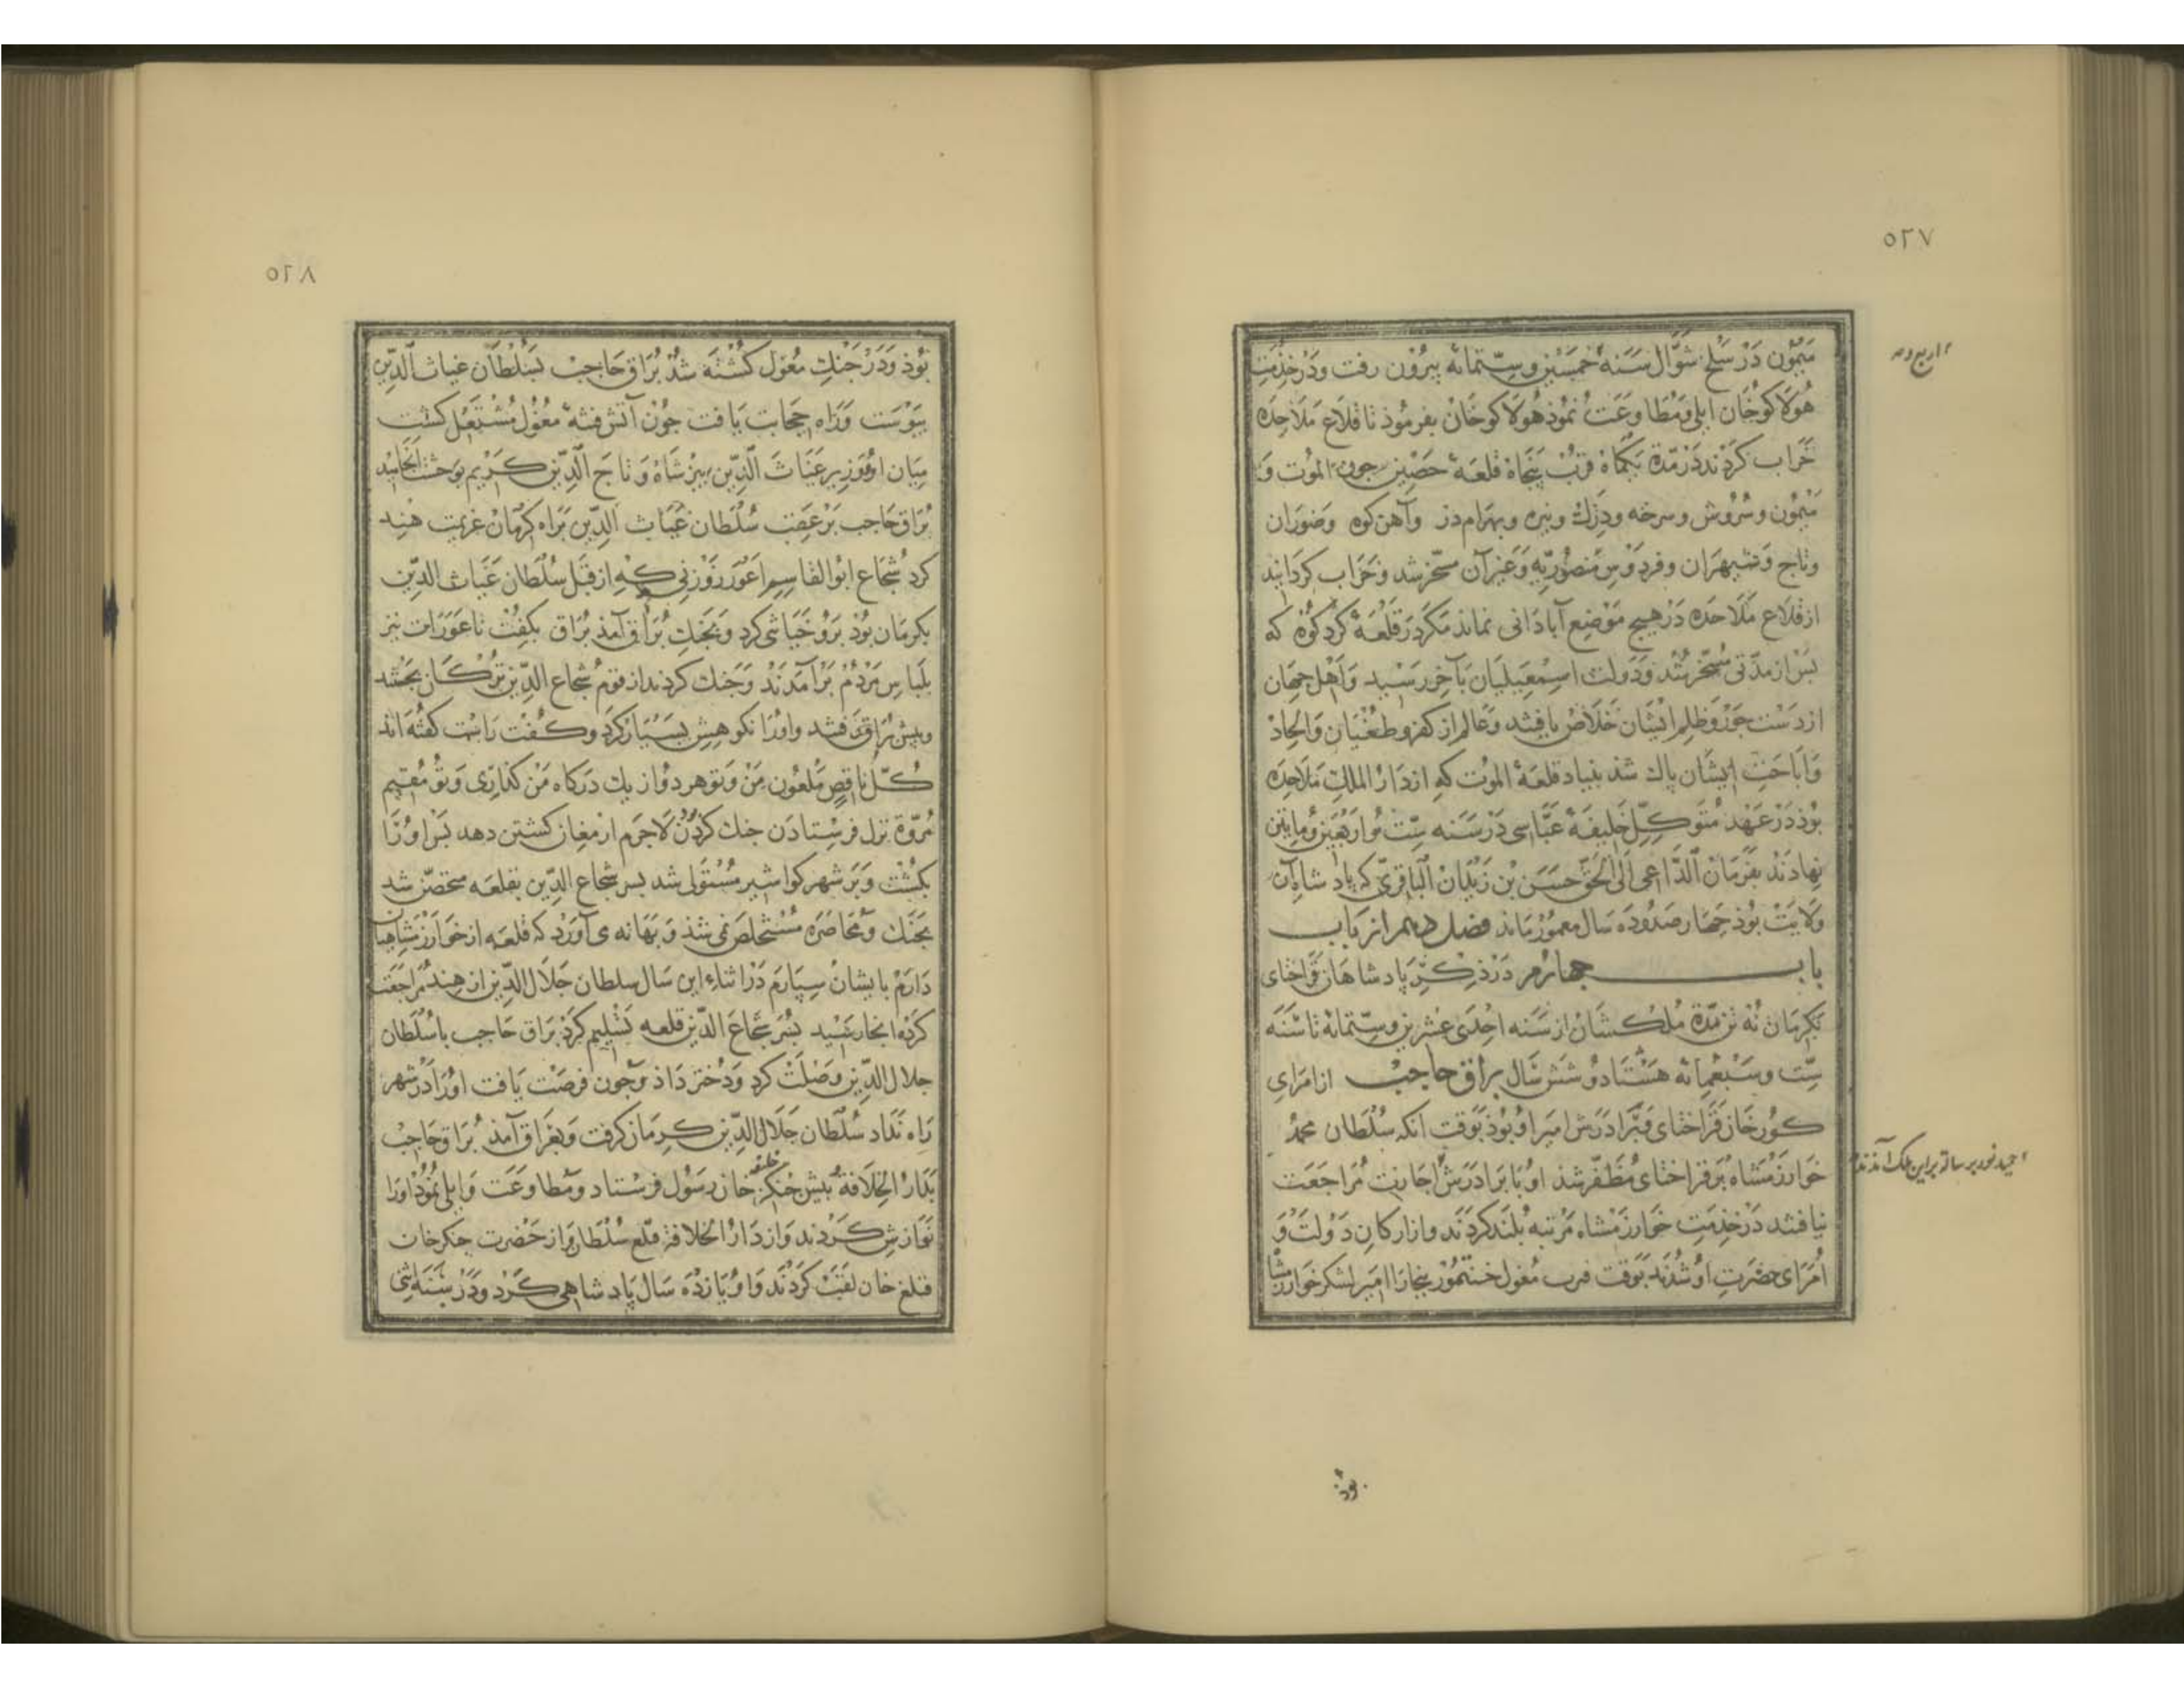 ٥٢٧
میمون در سلخ شوّال سنهٔ خمسین وستّمائه بیرون رفت ودر خدمت
هولاکوخان ایلی ومطاوعت نموذ هولاکوخان بفرموذ تا قلاع ملاحده
خراب کردند در مدّة یکماه قرب پنجاه قلعهٔ حصین جون الموت و
میمون وسروش وسرخه ودزك ونیره وبهرام دز وآهن کوه وضوران
وتاج وشمیران وفردوس منصوریّه وغیر آن مسخّر شد وخراب کردانید
از قلاع ملاحده در هیچ موضع آباذانی نماند مکر در قلعهٔ کرد کوه که
بس از مدّتی مسخّر شد ودولت اسمعیلیان بآخر رسید واهل جهان
از دست جور وظلم ایشان خلاص یافتند وعالم از کفر وطغنیان والحاذ
واباحت ایشان پاك شذ بنیاد قلعهٔ الموت که از دار الملك ملاحده
بوذ در عهد متوکّل خلیفهٔ عبّاسی در سنه ستّ واربعین ومایتین
نهادند بفرمان الدّاعی الی الحقّ حسن بن زید البٰاقریّ که پاد شاه آن
ولایت بوذ جهار صد وده سال معمور بماند فصل دهم از باب
باب جهارم در ذکر پاد شاهان قراختای
بکرمان نه تن مدّة ملکشان از سنه احدی عشرین وستّمائه تا سنه
ستّ وسبعمائه هشتاد وشش سال براق حاجب از امرای
کورخان قراختای برادرش امیر او بوذ بوقت آنکه سلطان محمد
خوارزمشاه بر قراختای مظفّر شذ او با برادرش اجازت مراجعت
نیافتند در خدمت خوارزمشاه مرتبه بلند کردند واز ارکان دولت و
امرای حضرت او شدند بوقت مغول بخارا امیر لشکر خوارزمشا
بوذ
٥٢٨
بوذ ودر جنك مغول کشته شد براق حاجب بسلطان غیاث الدّین
پیوست وراه حجابت یافت جون آتش فتنهٔ مغول مشتعل کشت
میان او ووزیر غیاث الدّین پیر شاه وتاج الدّین کریم بوحشت انجامید
براق حاجب بر عقب سلطان غیاث الدّین براه کرمان عزیمت هند
کرد شجاع ابو القاسم اعور زوزنی که از قبل سلطان غیاث الدّین
بکرمان بوذ برو کرد وبجنك براق آمذ براق بکفت تا عورات نیز
بلباس مردم برآمدند وجنك کردند از قوم شجاع الدّین ترکان بجستند
وپیش براق رفتند واورا نکوهش بسیار کرد وکفت راست کفته اند
کلّ ناقص ملعون من وتو هر دو از یك درکاه من وتو مقیم
مروّة نزل فرستادن جنك کردن لاجرم از کشتن دهد بس اورا
بکشت وبر شهر کواشیر مستولی شد بسر شجاع الدّین بقلعه متحصّن شد
بجنك ومحاصره مستخلص نمی شذ وبهانه می آورد که قلعه از خوارزمشاهیان
دارم بایشان سپارم در اثناء این سال سلطان جلال الدّین از هند مراجعت
کرده انجا رسید بسر شجاع الدّین قلعه تسلیم کرد براق حاجب با سلطان
جلال الدّین وصلت کرد ودختر داذ وجون فرصت یافت اورا در شهر
راه نداد سلطان جلال الدّین کرمان کرفت وبعراق آمذ براق حاجب
بدار الخلافة پیش جنکز خان رسول فرستاد ومطاوعت وایلی نموذ اورا
خلیفه
نوازش کردند واز دار الخلافة قلغ سلطان واز حضرت جنکز خان
قتلغ خان لقبت کردند واو یازده سال پاد شاهی کرد ودر سنه اثنی